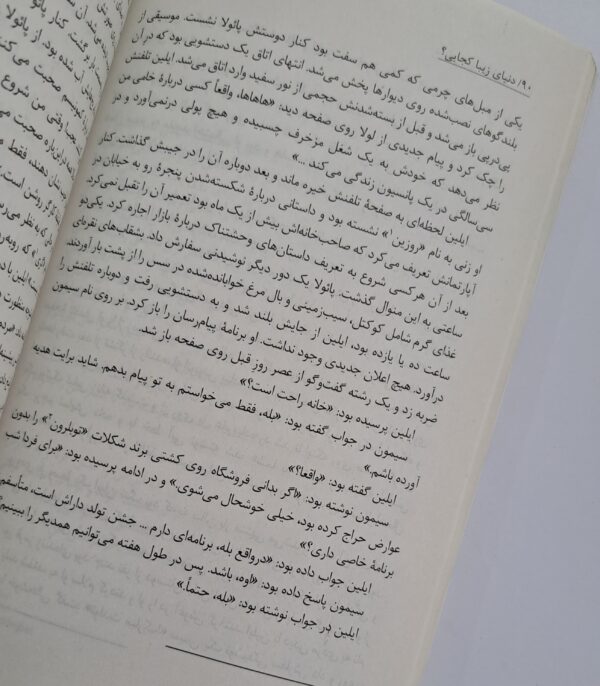 ۹۰/ دنیای زیبا کجایی؟
یکی از مبل‌های چرمی که کمی هم سفت بود کنار دوستش پائولا نشست. موسیقی از
بلندگوهای نصب‌شده روی دیوارها پخش می‌شد. انتهای اتاق یک دستشویی بود که در آن
پی‌درپی باز می‌شد و قبل از بسته‌شدنش حجمی از نور سفید وارد اتاق می‌شد. ایلین تلفنش
را چک کرد و پیام جدیدی از لولا روی صفحه دید: «هاهاها، واقعاً کسی دربارهٔ خامی من
نظر می‌دهد که خودش به یک شغل مزخرف چسبیده و هیچ پولی درنمی‌آورد و در
سی‌سالگی در یک پانسیون زندگی می‌کند ...»
ایلین لحظه‌ای به صفحهٔ تلفنش خیره ماند و بعد دوباره آن را در جیبش گذاشت. کنار
او زنی به نام «روزین۱» نشسته بود و داستانی دربارهٔ شکسته‌شدن پنجرهٔ رو به خیابان در
آپارتمانش تعریف می‌کرد که صاحب‌خانه‌اش بیش از یک ماه بود تعمیر آن را تقبل نمی‌کرد.
بعد از آن هر کسی شروع به تعریف داستان‌های وحشتناک دربارهٔ بازار اجاره کرد. یکی‌دو
ساعتی به این منوال گذشت. پائولا یک دور دیگر نوشیدنی سفارش داد. بشقاب‌های نقره‌ای
غذای گرم شامل کوکتل، سیب‌زمینی و بال مرغ خوابانده‌شده در سس را از پشت بار آوردند.
ساعت ده یا یازده بود، ایلین از جایش بلند شد و به دستشویی رفت و دوباره تلفنش را
درآورد. هیچ اعلان جدیدی وجود نداشت. او برنامهٔ پیام‌رسان را باز کرد. بر روی نام سیمون
ضربه زد و یک رشته گفت‌وگو از عصر روز قبل روی صفحه باز شد.
ایلین پرسیده بود: «خانه راحت است؟»
سیمون در جواب گفته بود: «بله، فقط می‌خواستم به تو پیام بدهم. شاید برایت هدیه
آورده باشم.»
ایلین گفته بود: «واقعا؟»
سیمون نوشته بود: «اگر بدانی فروشگاه روی کشتی برند شکلات «توبلرون۲» را بدون
عوارض حراج کرده بود، خیلی خوشحال می‌شوی.» و در ادامه پرسیده بود: «برای فردا شب
برنامهٔ خاصی داری؟»
ایلین جواب داده بود: «درواقع بله، برنامه‌ای دارم ... جشن تولد داراش است، متأسفم
سیمون پاسخ داده بود: «اوه، باشد. پس در طول هفته می‌توانیم همدیگر را ببینیم؟
ایلین در جواب نوشته بود: «بله، حتماً.»